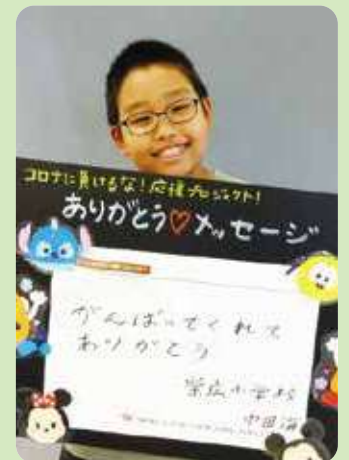 コロナに負けるな!応援プロジェクト!
ありがとう♡メッセージ
がんばってくれて
ありがとう
栄広小学校
中田